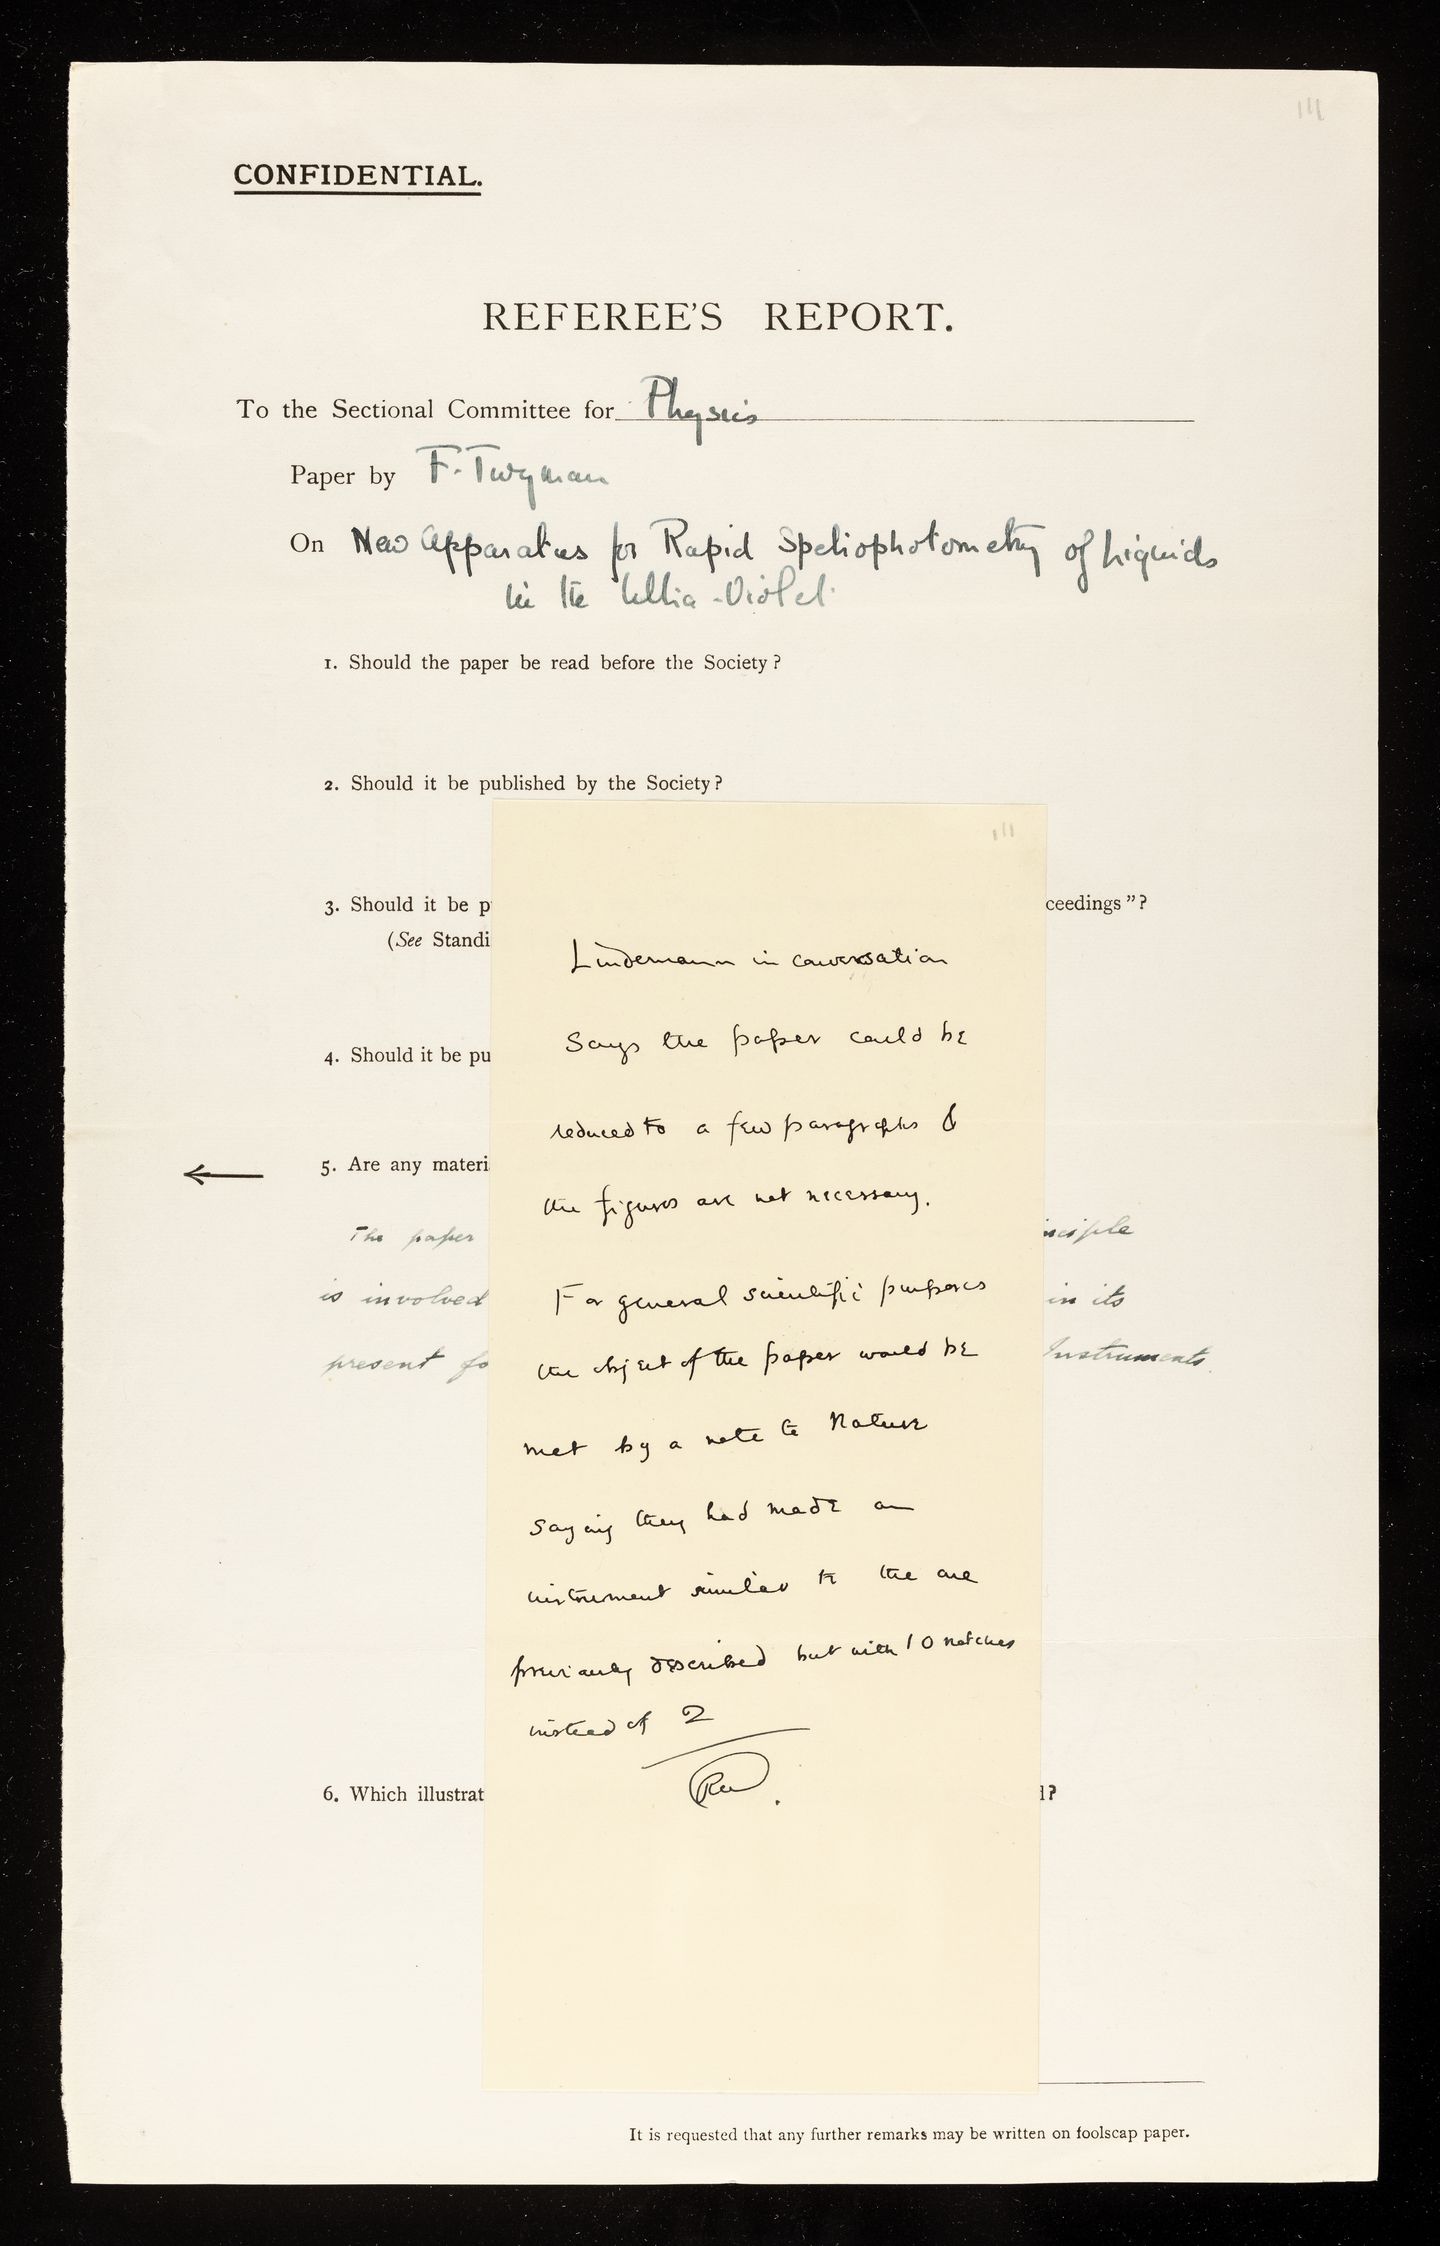 111
CONFIDENTIAL.
REFEREE'S REPORT.
To the Sectional Committee for Physics
Paper by F. Twyman
On New Apparatus for Rapid Spectrophotometry of Liquids
in the Ultra-Violet.
1. Should the paper be read before the Society?
2. Should it be published by the Society?
3. Should it be p
ceedings"?
(See Standi
4. Should it be pu
5. Are any materi
The paper
is involved in its
present fo Instruments.
6. Which illustrat
It is requested that any further remarks may be written on foolscap paper.
111
Lindemann in conversation
says the paper could be
reduced to a few paragraphs &
the figures are not necessary.
For general scientific purposes
the object of the paper would be
met by a note to Nature
saying they had made an
instrument similar to the one
previously described but with 10 notches
instead of 2